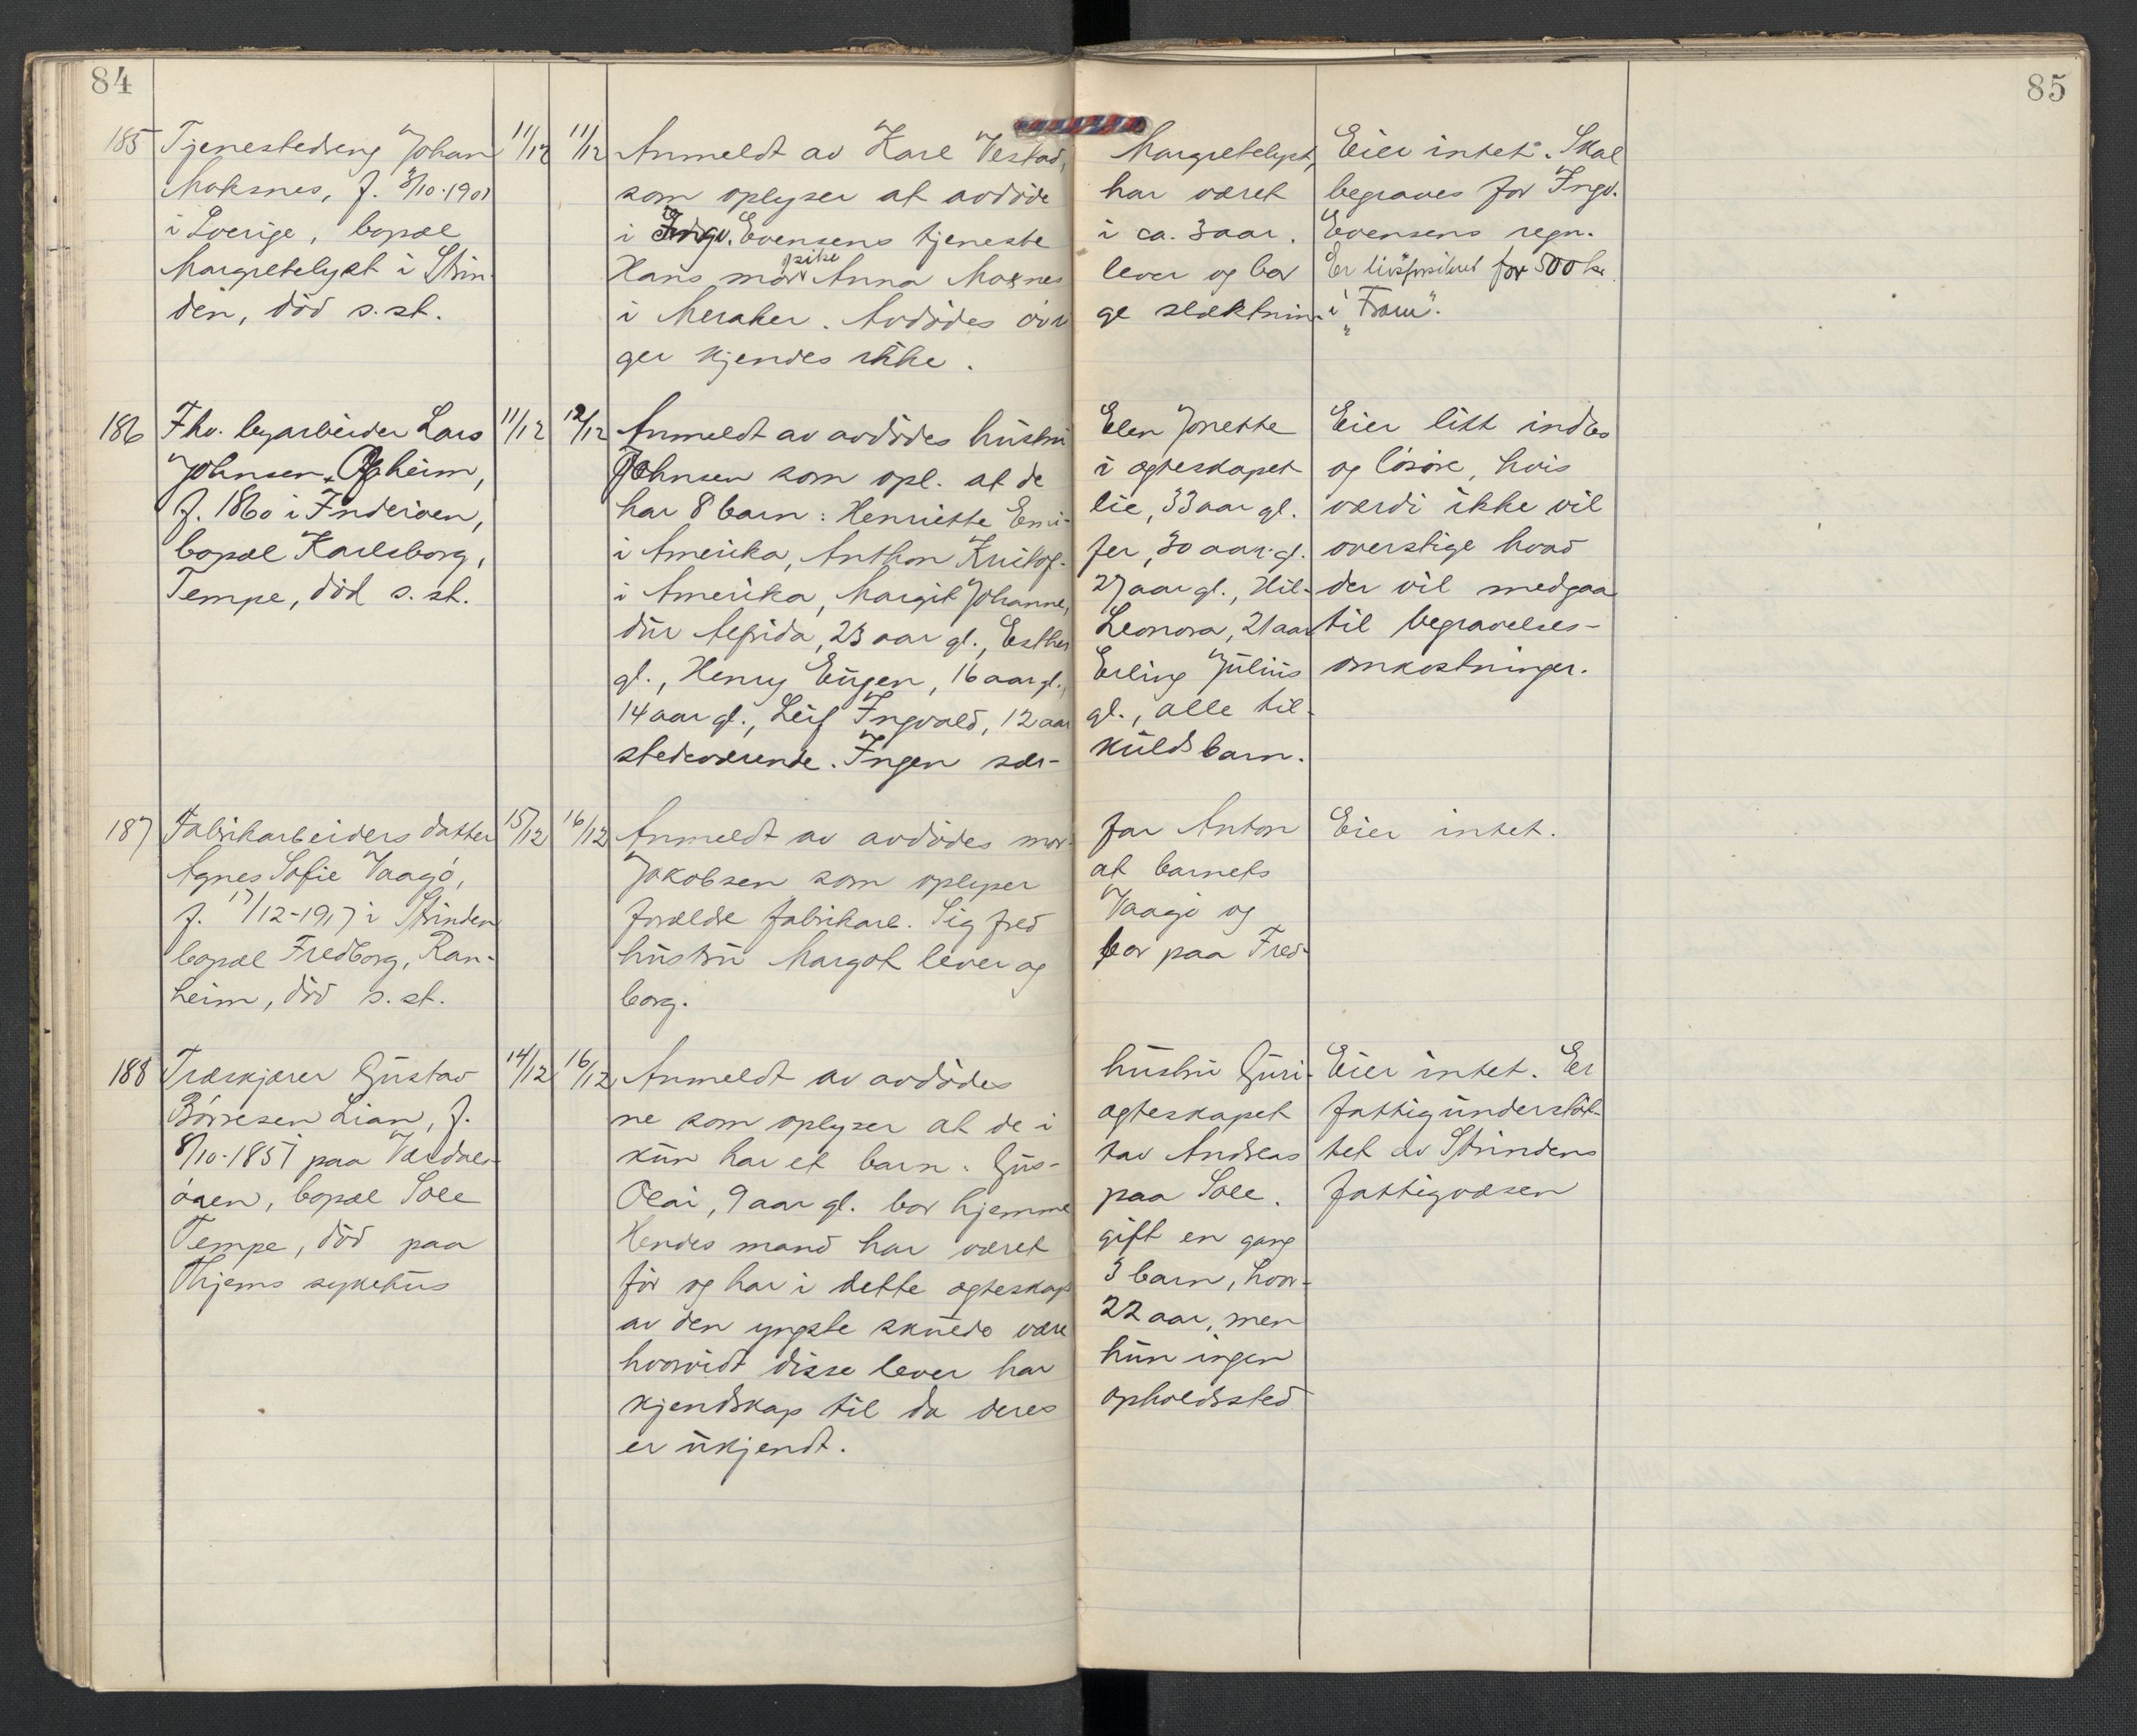 84
85
185 Tjenestedreng Johan 11/12 11/12 Anmeldt av Karl Vestad, Margretelyst, Eier intet. Skal
Moksnes, f. 3/10-1901 som oplyser at avdöde har været begraves for Ingv.
i Sverige, bopæl i Ingv. Evensens tjeneste i ca. 3 aar. Evensens regn.
Margretelyst i Strin- Hans mor pike Anna Moxnes lever og bor Er livsforsikret for 500 kr.
den, död s. st. i Meraker. Avdödes övri ge slektnin- i "Fram".
ger kjendes ikke.
186 Fhv. byarbeider Lars 11/12 12/12 Anmeldt av avdödes hustru Elen Jonette Eier litt indbo
Johnsen Opheim, Johnsen som opl. at de i ægteskapet og lösöre, hvis
f. 1860 i Inderöen, har 8 barn: Henriette Emi- lie, 33 aar gl. værdi ikke vil
bopæl Karlsborg, i Amerika, Anthon Kristof- fer, 30 aar gl. overstige hvad
Tempe, död s. st. i Amerika, Margit Johanne, 27 aar gl., Hil- der vil medgaa
dur Alfrida, 23 aar gl., Esther Leonora, 21 aar til begravelses-
gl., Henry Eugen, 16 aar gl., Erling Julius omkostninger.
14 aar gl., Leif Ingvald, 12 aar gl., alle til-
stedeværende. Ingen sær- kuldsbarn.
187 Fabrikarbeiders datter 15/12 16/12 Anmeldt av avdödes mor- far Anton Eier intet.
Agnes Sofie Vaagö, Jakobsen som oplyser at barnets
f. 17/12-1917 i Strinden forældre fabrikarb. Sigfred Vaagö og
bopæl Fredborg, Ran- hustru Margot lever og bor paa Fred-
heim, död s. st. borg.
188 Træskjærer Gustav 14/12 16/12 Anmeldt av avdödes hustru Guri- Eier intet. Er
Börresen Lian, f. ne som oplyser at de i ægteskapet fattigunderstöt-
8/10-1857 paa Værdals- kun har et barn: Gus- tav Andreas tet av Strindens
ören, bopæl Sole Olai, 9 aar gl. bor hjemme paa Sole. fattigvæsen
Tempe, död paa Hendes mand har været gift en gang
Thjems sykehus för og har i dette ægteskap 3 barn, hvor-
av den yngste skulde være 22 aar, men
hvorvidt disse lever har hun ingen
kjendskap til da deres opholdssted
er ukjendt.